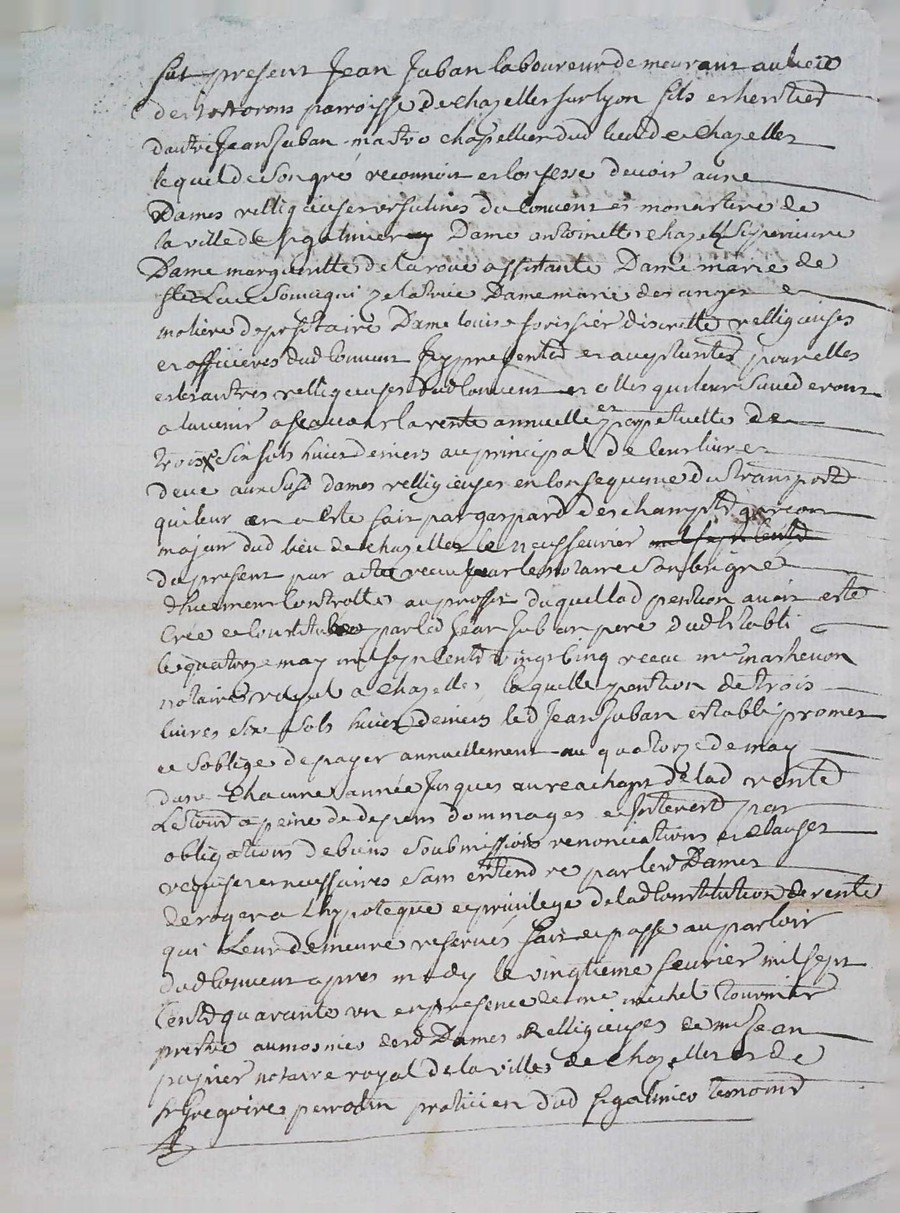 fut present Jean Juban laboureur demeurant au lieu
des parroisse de chazelles sur lyon fils et heritier
d'autre Jean Juban maitre chapellier dud lieu de chazelles
lequel de son gré reconnoit et confesse devoir aux
Dames relligieuses ursulines du couvent et monastere de
la ville de st galmier Dame antoinette chazell superieure
Dame margueritte de la roue assistante Dame marie de
ste Luce zelatrice Dame marie des anges
moliere depositaire Dame louise forissier discrette relligieuses
et officieres dud couvent Icy presentes et acceptantes pour elles
et les autres relligieuses dud couvent et celles qui leur succederont
a lavenir a scavoir la rente annuelle et perpetuelle de
trois £ six sols huit deniers au principal de cent livres
deue aux susd dames relligieuses en consequance du transport
qui leur en a esté fait par gaspard deschampts garcon
majeur dud lieu de chazelles le neuf fevrier
du present par acte receu par le notaire soubsigné
dhuement controllé au proffit duquel lad pention avoit esté
Crée et constituée par led Jean Juban pere dud establi
le quatorze may mil sept cents vingt cinq receu me marhevon
notaire royal a chazelles, laquelle pention de trois
livres six sols huit deniers led Jean Juban establi promet
et soblige de payer annuellement au quatorze de may
dune chacune année Jusques au reachapt de lad rente
Le tout a peine de depens dommages et interets par
obligations de biens soubmissions renonciations et clauses
requises et necessaires sans entendre par lesd Dames
deroger a Lhypoteque et privilege de lad Constitution de rente
qui Leur demeure reservés fait et passé au parloir
dud couvent apres midy le vingtieme fevrier mil sept
cents quarante un en presence de me michel tournier
pretre aumosnier desd Dames Relligieuses de me Jean
papier notaire royal de la ville de chazelles et de
sr Gregoire perrotin praticien dud st galmier temoins